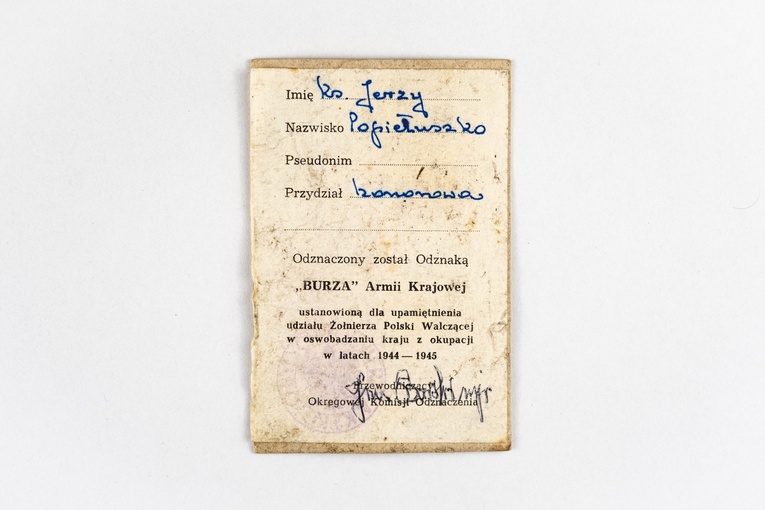 Imię ks. Jerzy
Nazwisko Popiełuszko
Pseudonim
Przydział honorowa
Odznaczony został Odznaką
„BURZA” Armii Krajowej
ustanowioną dla upamiętnienia
udziału Żołnierza Polski Walczącej
w oswobadzaniu kraju z okupacji
w latach 1944 — 1945
Przewodniczący
Okręgowej Komisji Odznaczenia